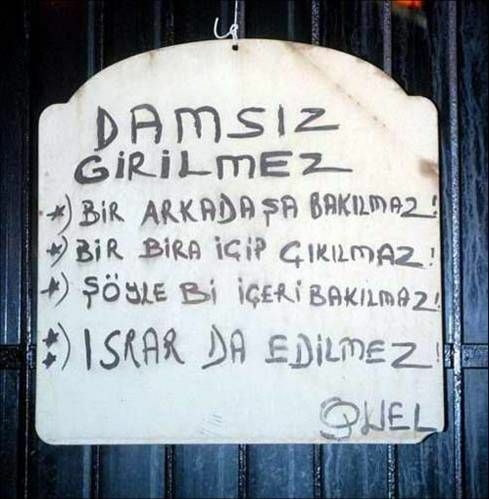 DAMSIZ
GİRİLMEZ
*) BİR ARKADAŞA BAKILMAZ!
*) BİR BİRA İÇİP ÇIKILMAZ!
*) ŞÖYLE Bİ İÇERİ BAKILMAZ!
**) ISRAR DA EDİLMEZ!
QUEL